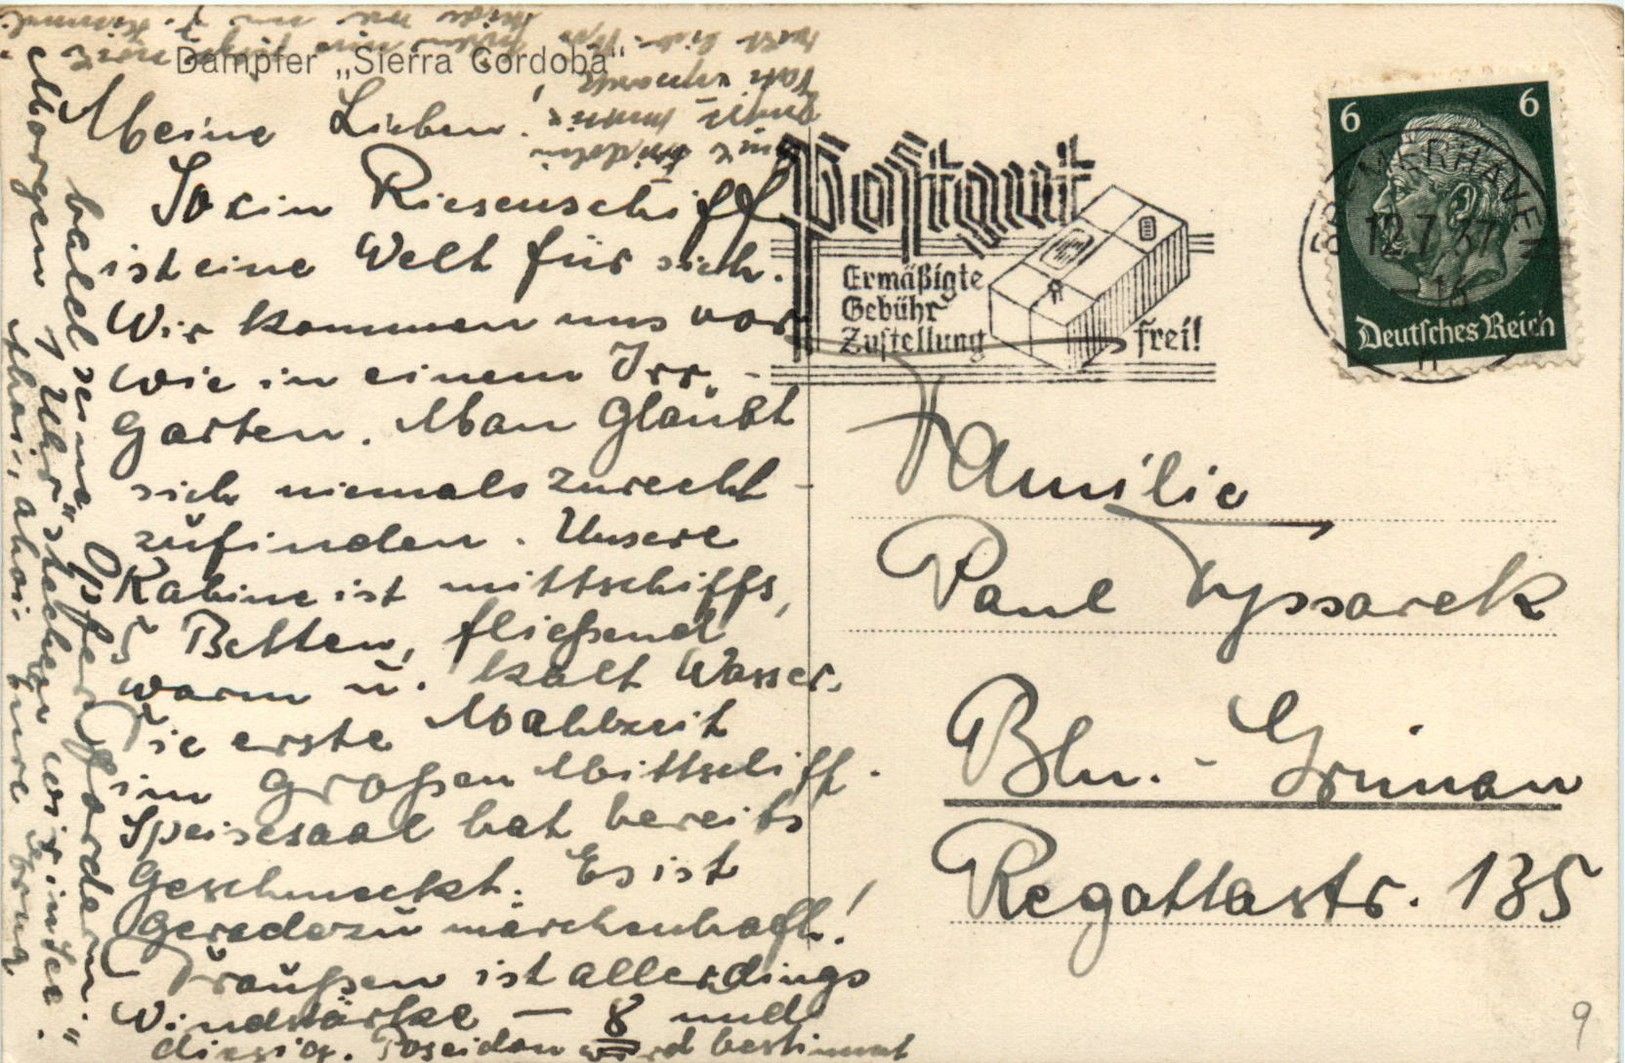 Dampfer „Sierra Cordoba"
Meine Lieben!
So ein Riesenschiff
ist eine Welt für sich.
Wir kommen uns vor
wie in einem Irr-
garten. Man glaubt
sich niemals zurecht-
zufinden. Unsere
Kabine ist mittschiffs,
5 Betten, fließend
warm u. kalt Wasser.
Die erste Mahlzeit
im großen Mittschiff-
Speisesaal hat bereits
geschmeckt. Es ist
geradezu märchenhaft!
Draußen ist allerdings
Windstärke – 8 und
diesig. Poseidon wird bestimmt
bald seine Opfer fordern.
Morgen 7 Uhr „stechen wir in See."
Ahoi, ahoi. Eure Erna
Postgut
Ermäßigte
Gebühr
Zustellung frei!
6 6
Deutsches Reich
12.7.37
Familie
Paul Tyssarek
Bln.-Grünau
Regattastr. 135
9